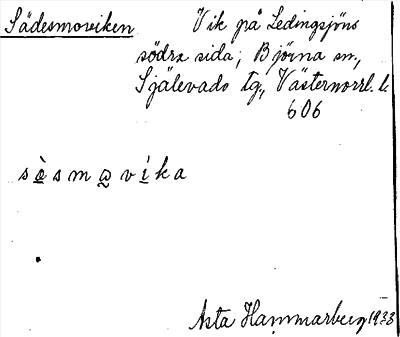 Sädesmoviken Vik på Ledingsjöns
södra sida; Björna sn,
Själevads tg., Västernorrl. l.
606
sòsmωvíka
Asta Hammarberg 1933